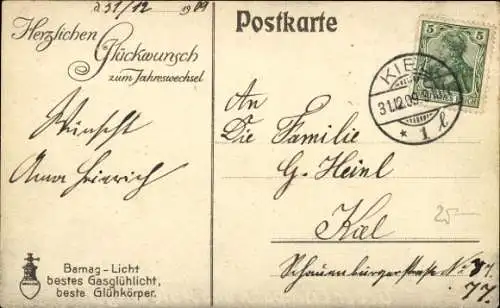 d 31/12 1909
Herzlichen
Glückwunsch
zum Jahreswechsel
Wünscht
Anna Heinrich
Bamag-Licht
bestes Gasglühlicht,
beste Glühkörper.
Postkarte
5 5
KIEL
31.12.09
* 1 l
An
Die Familie
G. Heinl
Kiel
25
Schauenburgerstraße No 77